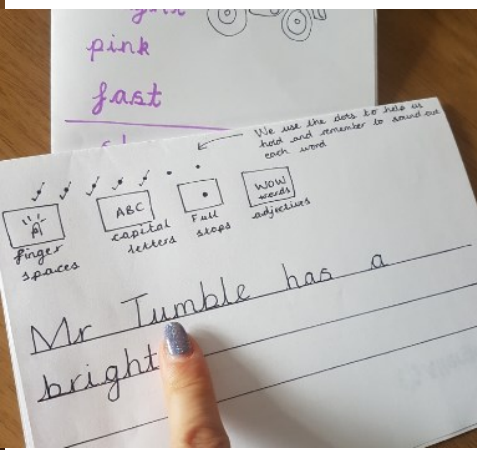 pink
fast
We use the dots to help us
hold and remember to sound out
each word
ABC
WOW
words
finger
spaces
capital
letters
Full
stops
adjectives
Mr Tumble has a
bright